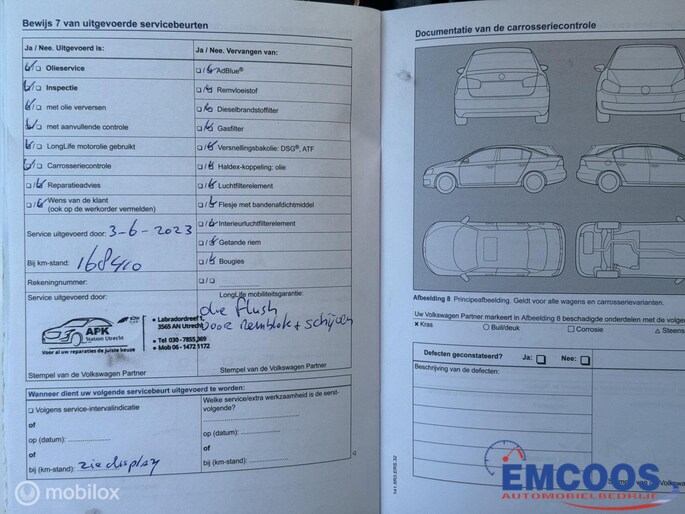 Bewijs 7 van uitgevoerde servicebeurten
Ja / Nee. Uitgevoerd is:
Olieservice
Inspectie
met olie verversen
met aanvullende controle
LongLife motorolie gebruikt
Carrosseriecontrole
Reparatieadvies
Wens van de klant
(ook op de werkorder vermelden)
Service uitgevoerd door: 3-6-2023
Bij km-stand: 168410
Rekeningnummer:
Service uitgevoerd door:
APK
Station Utrecht
Voor al uw reparaties de juiste keuze
• Labradordreef 1,
3565 AN Utrecht
• Tel 030 - 7855369
• Mob 06 - 1472 1172
Stempel van de Volkswagen Partner
Ja / Nee. Vervangen van:
AdBlue®
Remvloeistof
Dieselbrandstoffilter
Gasfilter
Versnellingsbakolie: DSG®, ATF
Haldex-koppeling: olie
Luchtfilterelement
Flesje met bandenafdichtmiddel
Interieurluchtfilterelement
Getande riem
Bougies
LongLife mobiliteitsgarantie:
olie flush
Voor Remblok + schijven
Stempel van de Volkswagen Partner
Wanneer dient uw volgende servicebeurt uitgevoerd te worden:
Volgens service-intervalindicatie
of
op (datum):
of
bij (km-stand): zie display
Welke service/extra werkzaamheid is de eerst-
volgende?
op (datum):
of
bij (km-stand):
Documentatie van de carrosseriecontrole
Afbeelding 8 Principeafbeelding. Geldt voor alle wagens en carrosserievarianten.
Uw Volkswagen Partner markeert in Afbeelding 8 beschadigde onderdelen met de volgen
× Kras
○ Buil/deuk
□ Corrosie
△ Steens
Defecten geconstateerd?
Ja:
Nee:
Beschrijving van de defecten:
van de Volksw
EMCOOS
AUTOMOBIELBEDRIJF
mobilox